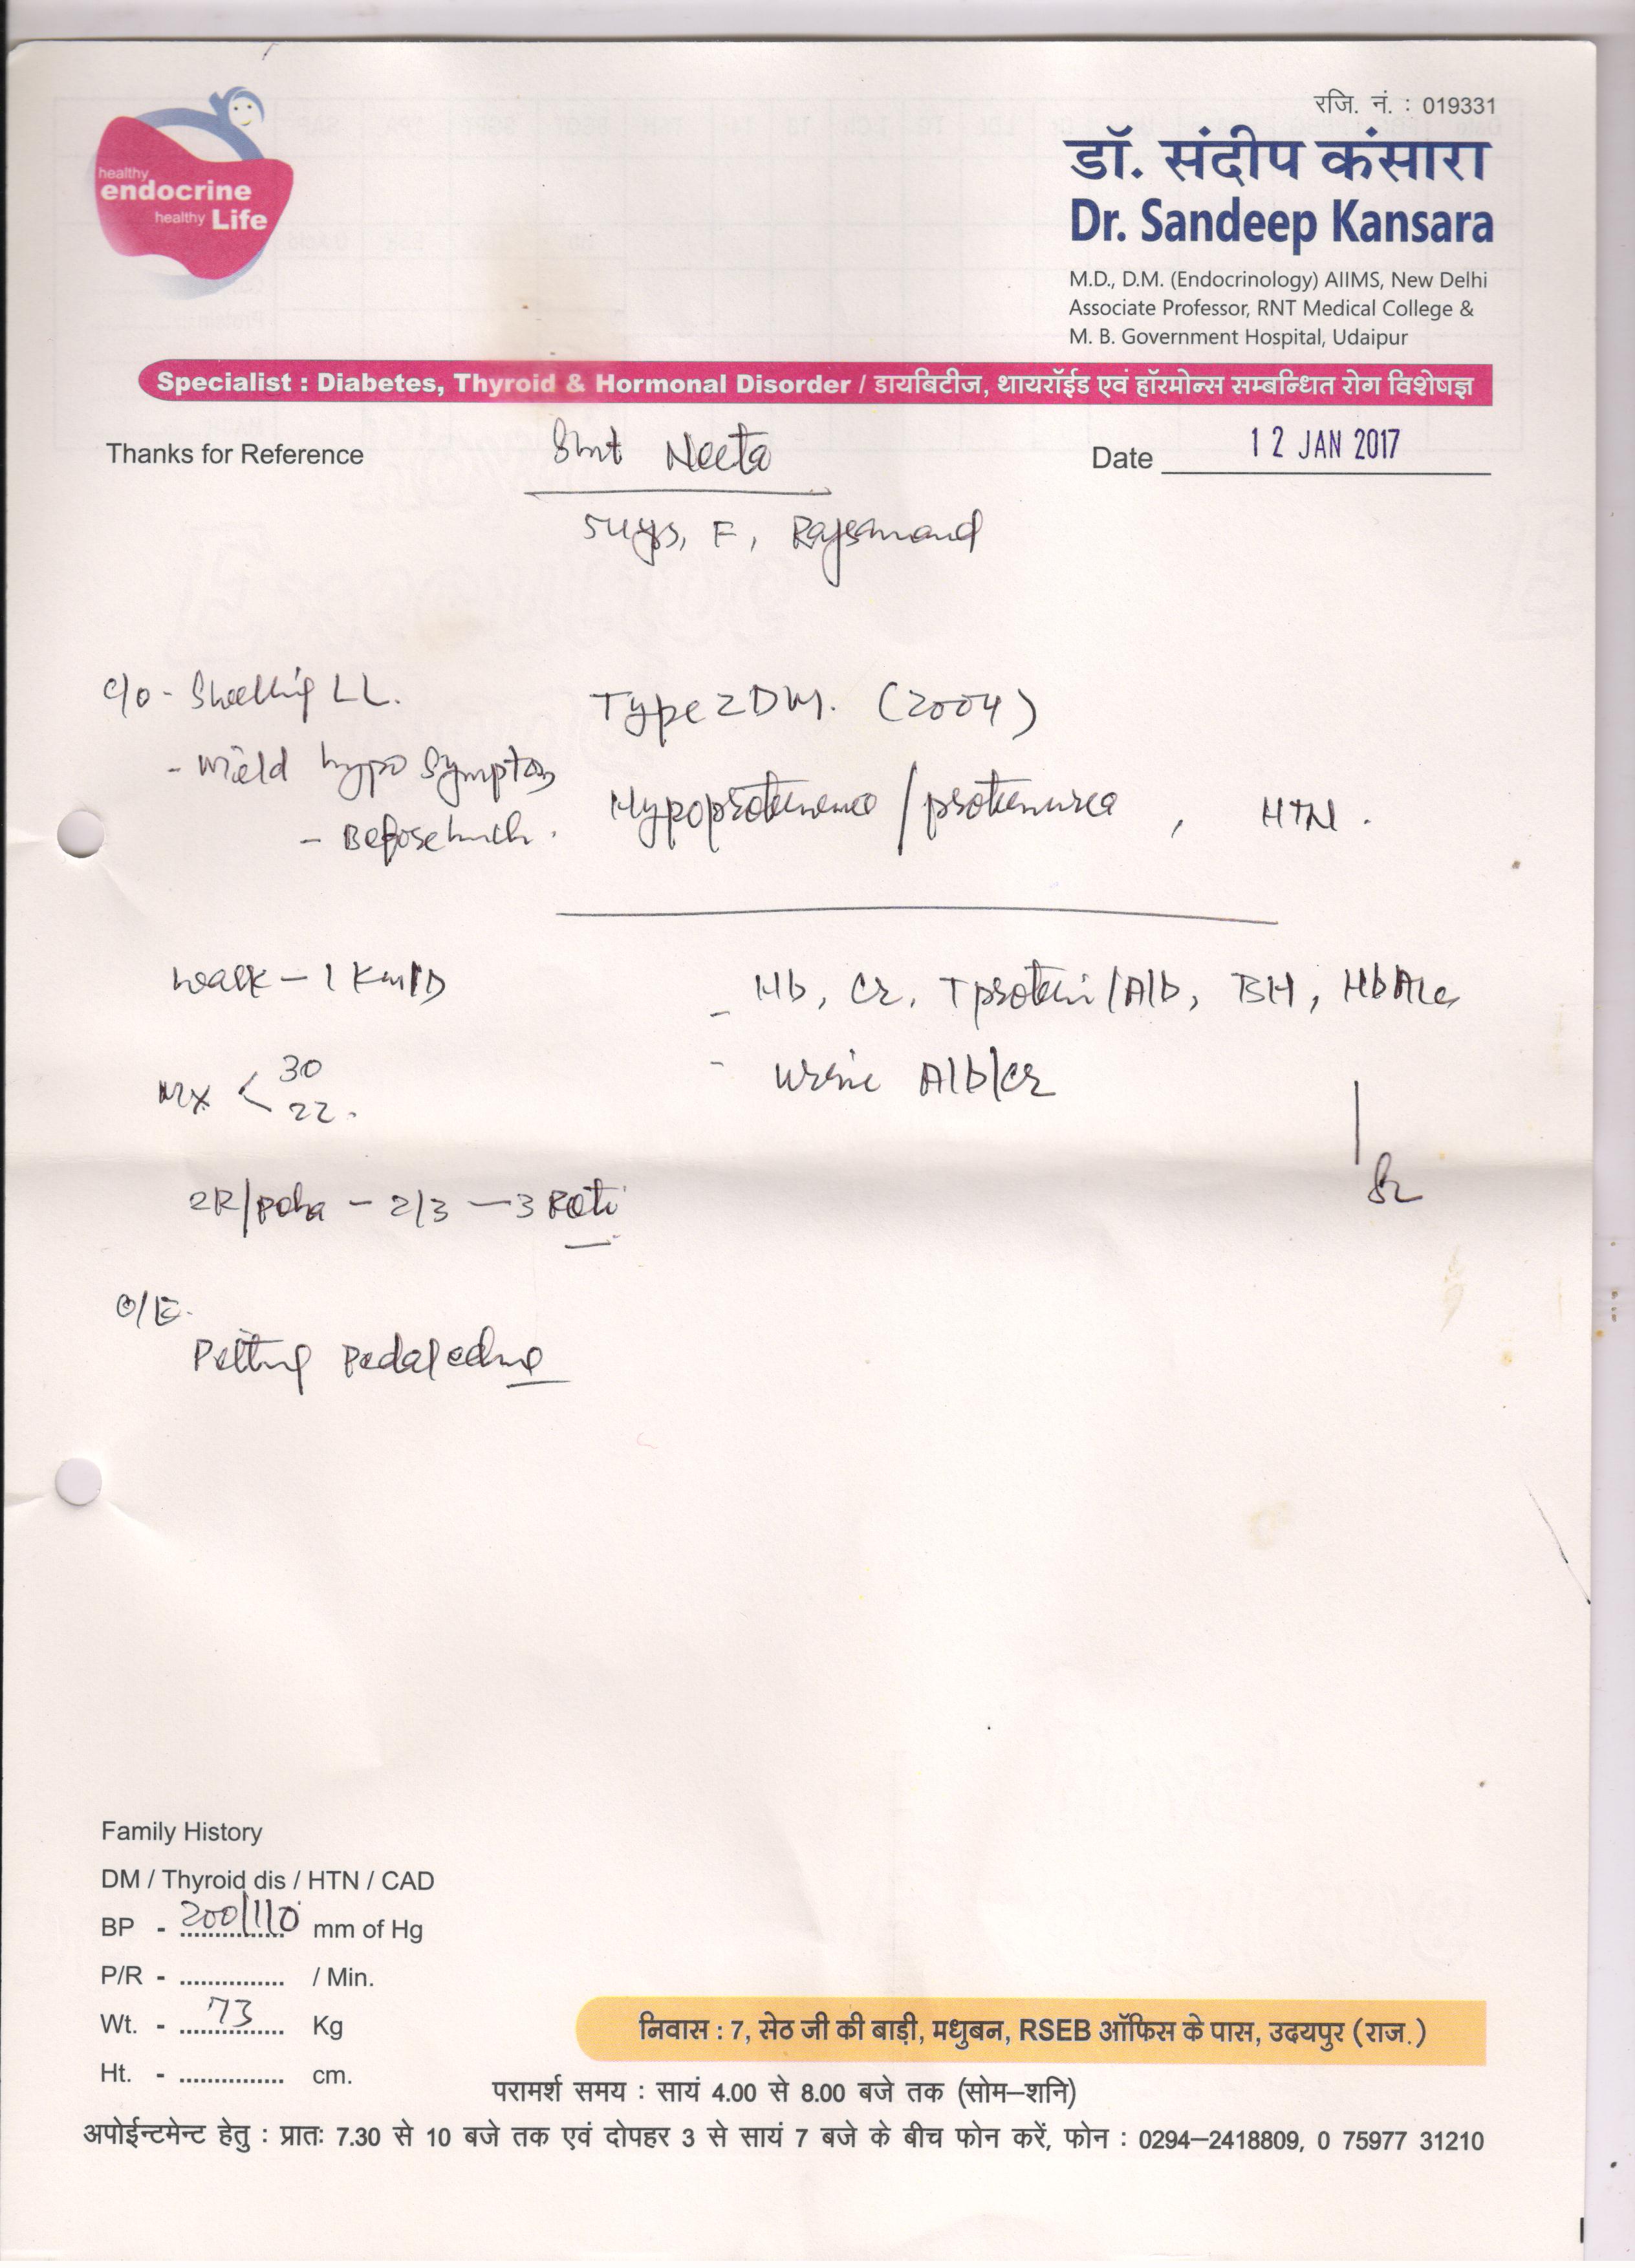 healthy
endocrine
healthy Life
रजि. नं. : 019331
डॉ. संदीप कंसारा
Dr. Sandeep Kansara
M.D., D.M. (Endocrinology) AIIMS, New Delhi
Associate Professor, RNT Medical College &
M. B. Government Hospital, Udaipur
Specialist : Diabetes, Thyroid & Hormonal Disorder / डायबिटीज, थायरॉईड एवं हॉरमोन्स सम्बन्धित रोग विशेषज्ञ
Thanks for Reference
Smt Neeta
Date 12 JAN 2017
54ys, F, Rajsamand
c/o - Swelling LL.
Type 2 DM. (2004)
- mild hypo symptoms
Hypoproteinemia / proteinurea, HTN.
- Before lunch.
walk - 1 Km/D
- Hb, Cr, T protein/Alb, TSH, HbA1c
Mx < 30
22.
- Urine Alb/cr
2R/poha - 2/3 - 3 Roti
O/E.
Pitting pedal edema
Family History
DM / Thyroid dis / HTN / CAD
BP - 200/110 mm of Hg
P/R - ............... / Min.
Wt. - 73 Kg
Ht. - ............... cm.
निवास : 7, सेठ जी की बाड़ी, मधुबन, RSEB ऑफिस के पास, उदयपुर (राज.)
परामर्श समय : सायं 4.00 से 8.00 बजे तक (सोम–शनि)
अपोईन्टमेन्ट हेतु : प्रातः 7.30 से 10 बजे तक एवं दोपहर 3 से सायं 7 बजे के बीच फोन करें, फोन : 0294–2418809, 0 75977 31210